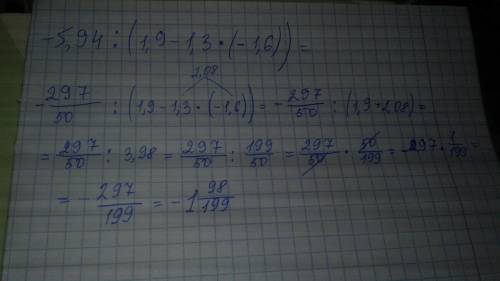 -5,94 : (1,9 - 1,3 · (-1,6)) =
2,08
- 297/50 : (1,9 - 1,3 · (-1,6)) = - 297/50 : (1,9 + 2,08) =
= 297/50 : 3,98 = 297/50 : 199/50 = 297/50 · 50/199 = -297 · 1/199 =
= - 297/199 = -1 98/199